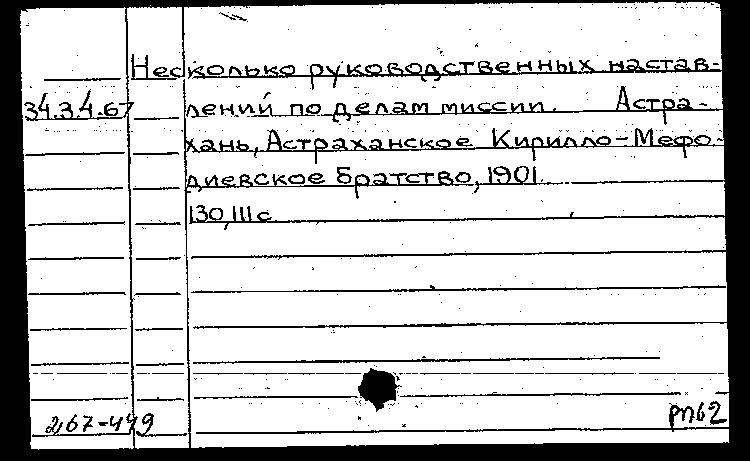 Несколько руководственных настав-
34.3.4.67 лений по делам миссии. Астра-
хань, Астраханское Кирилло-Мефо-
диевское братство, 1901.
130, III с
2,67-449 рп62